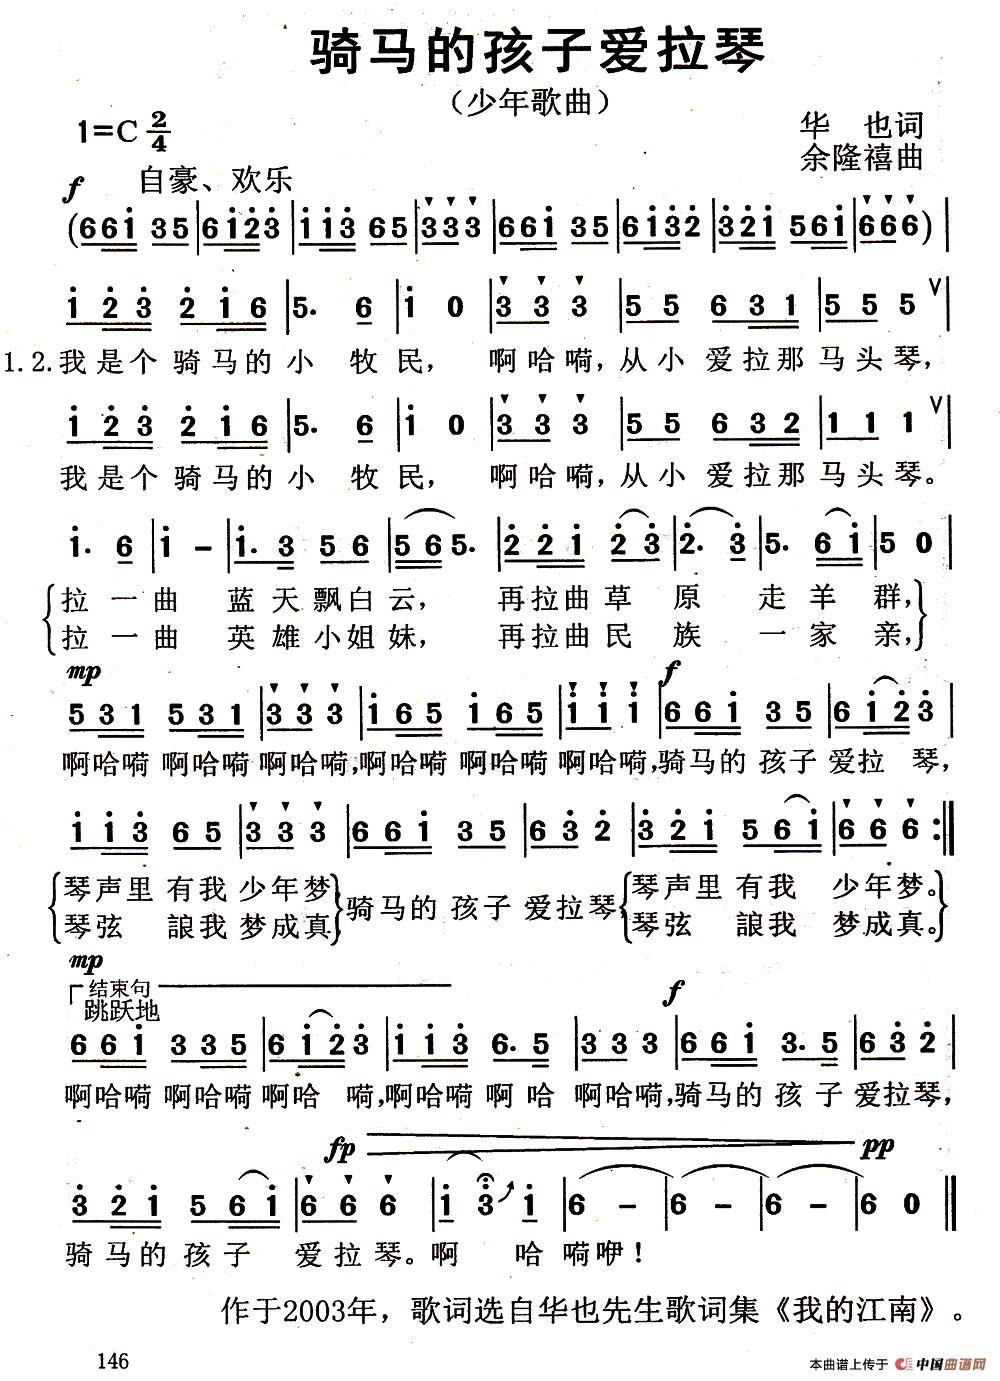 骑马的孩子爱拉琴
（少年歌曲）
1=C 2/4
华 也词
余隆禧曲
f 自豪、欢乐
(661̇ 35 | 61̇2̇3̇ | 1̇1̇3̇ 65 | 3̇3̇3̇ | 661̇ 35 | 61̇3̇2̇ | 3̇2̇1̇ 561̇ | 666) |
1̇ 2̇ 3̇ 2̇ 1̇ 6 | 5. 6 | 1̇ 0 | 3̇ 3̇ 3̇ | 5 5 6 3 1 | 5 5 5 V
1.2.我是个 骑马的小 牧民， 啊哈嗬，从小 爱拉那 马头琴，
1̇ 2̇ 3̇ 2̇ 1̇ 6 | 5. 6 | 1̇ 0 | 3̇ 3̇ 3̇ | 5 5 6 3 2 | 1 1 1 V
我是个 骑马的小 牧民， 啊哈嗬，从小 爱拉那 马头琴。
1̇. 6 | 1̇ – | 1̇. 3̇ 5 6 | 5 6 5. | 2̇ 2̇ 1̇ 2̇ 3̇ | 2̇. 3̇ | 5. 6 1̇ | 5 0 |
拉一曲 蓝天飘白云， 再拉曲草 原 走羊群，
拉一曲 英雄小姐妹， 再拉曲民 族 一家亲，
mp f
5 3 1 5 3 1 | 3 3 3 | 1̇ 6 5 1̇ 6 5 | 1̇ 1̇ 1̇ | 6 6 1̇ 3 5 | 6 1̇ 2̇ 3̇ |
啊哈嗬 啊哈嗬 啊哈嗬，啊哈嗬 啊哈嗬 啊哈嗬，骑马的 孩子 爱拉 琴，
1̇ 1̇ 3̇ 6 5 | 3̇ 3̇ 3̇ | 6 6 1̇ 3 5 | 6 3̇ 2̇ | 3̇ 2̇ 1̇ 5 6 1̇ | 6 6 6 :‖
琴声里 有我 少年梦 骑马的 孩子 爱拉琴 琴声里 有我 少年梦。
琴弦 誏我 梦成真 琴弦 誏我 梦成真。
mp
结束句
跳跃地 f
6 6 1̇ 3 3 5 | 6 1̇ 2̇ 3̇ | 1̇ 1̇ 3̇ 6. 5 | 3 3 3 | 6 6 1̇ 3. 5 | 6 3̇ 2̇ |
啊哈嗬 啊哈嗬 啊哈 嗬，啊哈嗬 啊 哈 啊哈嗬，骑马的 孩 子 爱拉琴，
fp pp
3̇ 2̇ 1̇ 5 6 1̇ | 6 6 6 | 1̇ 3̇ 1̇ | 6 – | 6 – | 6 – | 6 0 ‖
骑马的 孩子 爱拉琴。啊 哈 嗬咿！
作于2003年，歌词选自华也先生歌词集《我的江南》。
146
本曲谱上传于 中国曲谱网